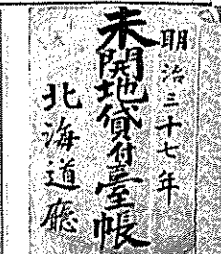 明治三十七年
未開地貸付臺帳
北海道廳